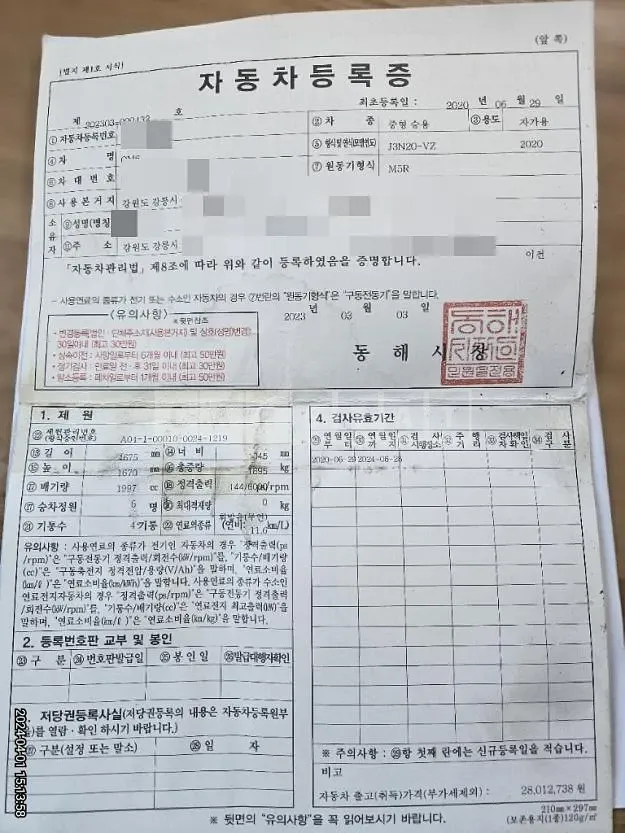 [별지 제1호 서식]
(앞 쪽)
자동차등록증
최초등록일 : 2020 년 06 월 29 일
제 호
①자동차등록번호
②차 종 중형 승용
③용도 자가용
④차 명
⑤형식 및 연식(모델연도) J3N20-VZ 2020
⑥차대번호
⑦원동기형식 M5R
⑧사용본거지 강원도 강릉시
소유자
⑨성명(명칭)
⑪주 소 강원도 강릉시
이전
「자동차관리법」 제8조에 따라 위와 같이 등록하였음을 증명합니다.
- 사용연료의 종류가 전기 또는 수소인 자동차의 경우 ⑦번란의 "원동기형식"은 "구동전동기"를 말합니다.
<유의사항> ※뒷면참조
2023 년 03 월 03 일
- 변경등록(법인·단체주소지(사용본거지) 및 상호(성명)변경) : 30일이내 (최고 30만원)
- 상속이전 : 사망일로부터 6개월 이내 (최고 50만원)
- 정기검사 : 만료일 전·후 31일 이내 (최고 30만원)
- 말소등록 : 폐차일로부터 1개월 이내 (최고 50만원)
동 해 시 장
1. 제 원
제원관리번호 (형식승인번호) A04-1-00010-0024-1219
길 이 4675 mm
너 비 mm
높 이 1670 mm
총중량 1895 kg
배기량 1997 cc
정격출력 144/6000/rpm
승차정원 5 명
최대적재량 0 kg
기통수 4 기통
연료의종류 (연비: 11.0 km/L)
유의사항 : 사용연료의 종류가 전기인 자동차의 경우 "정격출력(ps
/rpm)"은 "구동전동기 정격출력/회전수(kW/rpm)"를, "기통수/배기량
(cc)"은 "구동축전지 정격전압/용량(V/Ah)"을 말하며, "연료소비율
(km/ℓ)"은 "연료소비율(km/kWh)"을 말합니다. 사용연료의 종류가 수소인
연료전지자동차의 경우 "정격출력(ps/rpm)"은 "구동전동기 정격출력
/회전수(kW/rpm)"를, "기통수/배기량(cc)"은 "연료전지 최고출력(kW)"을
말하며, "연료소비율(km/ℓ)"은 "연료소비율(km/kg)"을 말합니다.
2. 등록번호판 교부 및 봉인
구 분 번호판발급일 봉인일 발급대행자확인
3. 저당권등록사실(저당권등록의 내용은 자동차등록원부
(을)를 열람·확인 하시기 바랍니다.)
구분(설정 또는 말소) 일 자
4. 검사유효기간
연월일부터 연월일까지 검사시행장소 주행거리 검사책임자확인 검사구분
2020-06-29 2024-06-28
※ 주의사항 : ㉙항 첫째 란에는 신규등록일을 적습니다.
비고
자동차 출고(취득)가격(부가세제외) : 28,012,738 원
210㎜×297㎜
(보존용지(1종)120g/㎡
※ 뒷면의 "유의사항"을 꼭 읽어보시기 바랍니다.
2024/04/01 15:13:58